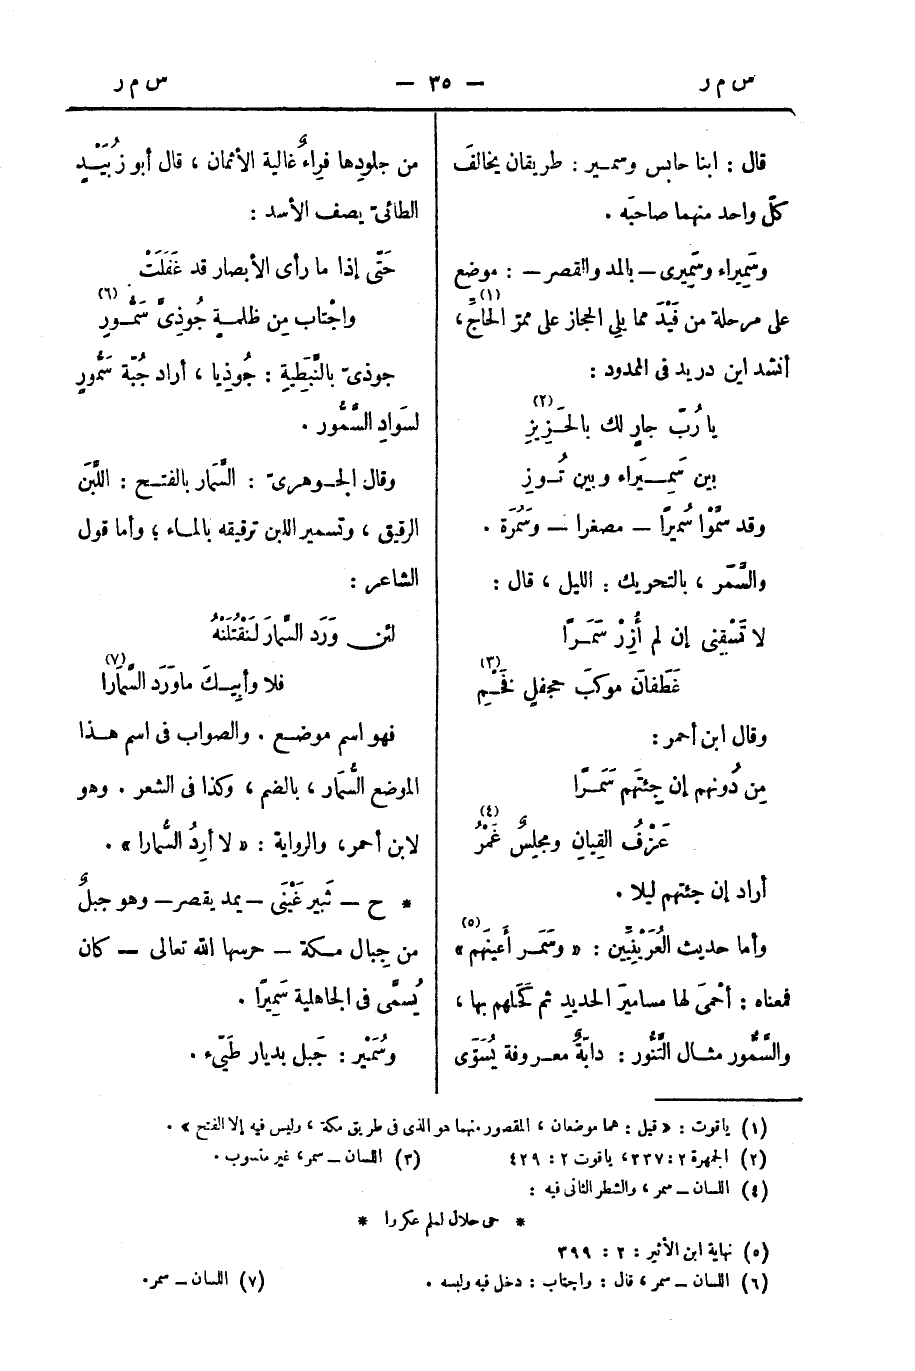 س م ر — ٣٥ — س م ر
قال : ابنا حابس وسمير : طريقان يخالفَ
كلّ واحد منهما صاحبَه .
وسَمِيراء وسَمِيرى — بالمد والقصر — : موضع
على مرحلة من فَيْدَ مما يلى الحجاز على ممرّ الحَاجّ(١)،
أنشد ابن دريد فى الممدود :
يا رُبّ جارٍ لك بالحَزِيزِ(٢)
بين سَمِيراء وبين تُوزِ
وقد سَمَّوْا سُميرًا — مصغرا — وسَمُرَة .
والسَّمَر ، بالتحريك : الليل ، قال :
لا تَسْقِنى إن لم أُزِرْ سَمَرًا
غَطَفانَ موكبَ جحفلٍ فَخْمِ(٣)
وقال ابن أحمر :
مِن دُونهم إن جِئتَهم سَمَرًا
عَزْفُ القِيانِ ومجلِسٌ غَمْرُ(٤)
أراد إن جئتهم ليلا .
وأما حديث العُرَيْنِيِّين : « وسَمَر أعينَهم »(٥)
فمعناه : أحْمِىَ لها مساميرَ الحديدِ ثم كَحَلهم بها ،
والسَّمُّور مثال التَّنُّور : دابّةٌ معروفة يُسَوَّى
من جلودِها فِراءٌ غالية الأثمان ، قال أبو زُبَيْدٍ
الطائىّ يصف الأسد :
حَتّى إذا ما رأى الأبصار قد غَفَلَتْ
واجْتاب مِن ظلمةٍ جُوذِىَّ سَمُّورِ(٦)
جوذىّ بالنَّبَطِيةِ : جُوذِيا ، أراد جُبّة سَمُّورٍ
لسَوادِ السَّمُّور .
وقال الجوهرىّ : السَّمَار بالفتح : اللَّبَن
الرقيق ، وتسمير اللبن ترقيقه بالماء ؛ وأما قول
الشاعر :
لئن وَرَدَ السَّمارَ لنَقْتُلَنْهُ
فلا وأبِيكَ ماوَرَد السَّمَارا(٧)
فهو اسم موضع . والصواب فى اسم هذا
الموضع السُّمَار ، بالضم ، وكذا فى الشعر . وهو
لابن أحمر، والرواية : « لا أرِدُ السُّمارا » .
* ح — ثَبِير غَيْنَى — يمد يقصر — وهو جبلٌ
من جِبال مكة — حرسها الله تعالى — كان
يُسمَّى فى الجاهلية سَمِيرًا .
وسُمَيْر : جَبل بديار طَيّء .
(١) ياقوت : « قيل : هما موضعان ، المقصور منهما هو الذى فى طريق مكة ، وليس فيه إلا الفتح » .
(٢) الجمهرة ٢ : ٣٣٧، ياقوت ٢ : ٤٢٩ (٣) اللسان — سمر، غير منسوب .
(٤) اللسان — سمر ، والشطر الثانى فيه :
* حى حلال لملم عكر را *
(٥) نهاية ابن الأثير : ٢ : ٣٩٩
(٦) اللسان — سمر ، قال : واجتاب : دخل فيه ولبسه . (٧) اللسان — سمر.